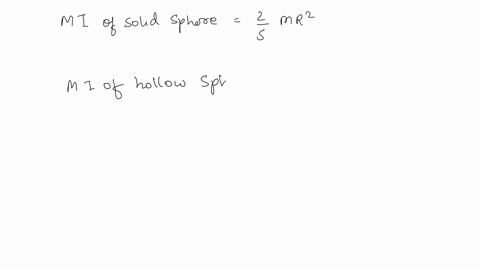 MI of solid sphere = 2/5 MR²
MI of hollow Sp